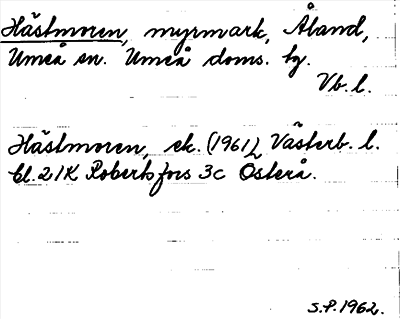 Hästmoren, myrmark, Åland,
Umeå sn. Umeå doms. hg.
Vb. l.
Hästmoren, ek. (1961) Västerb. l.
bl. 21K Robertsfors 3c Österå.
S.P. 1962.